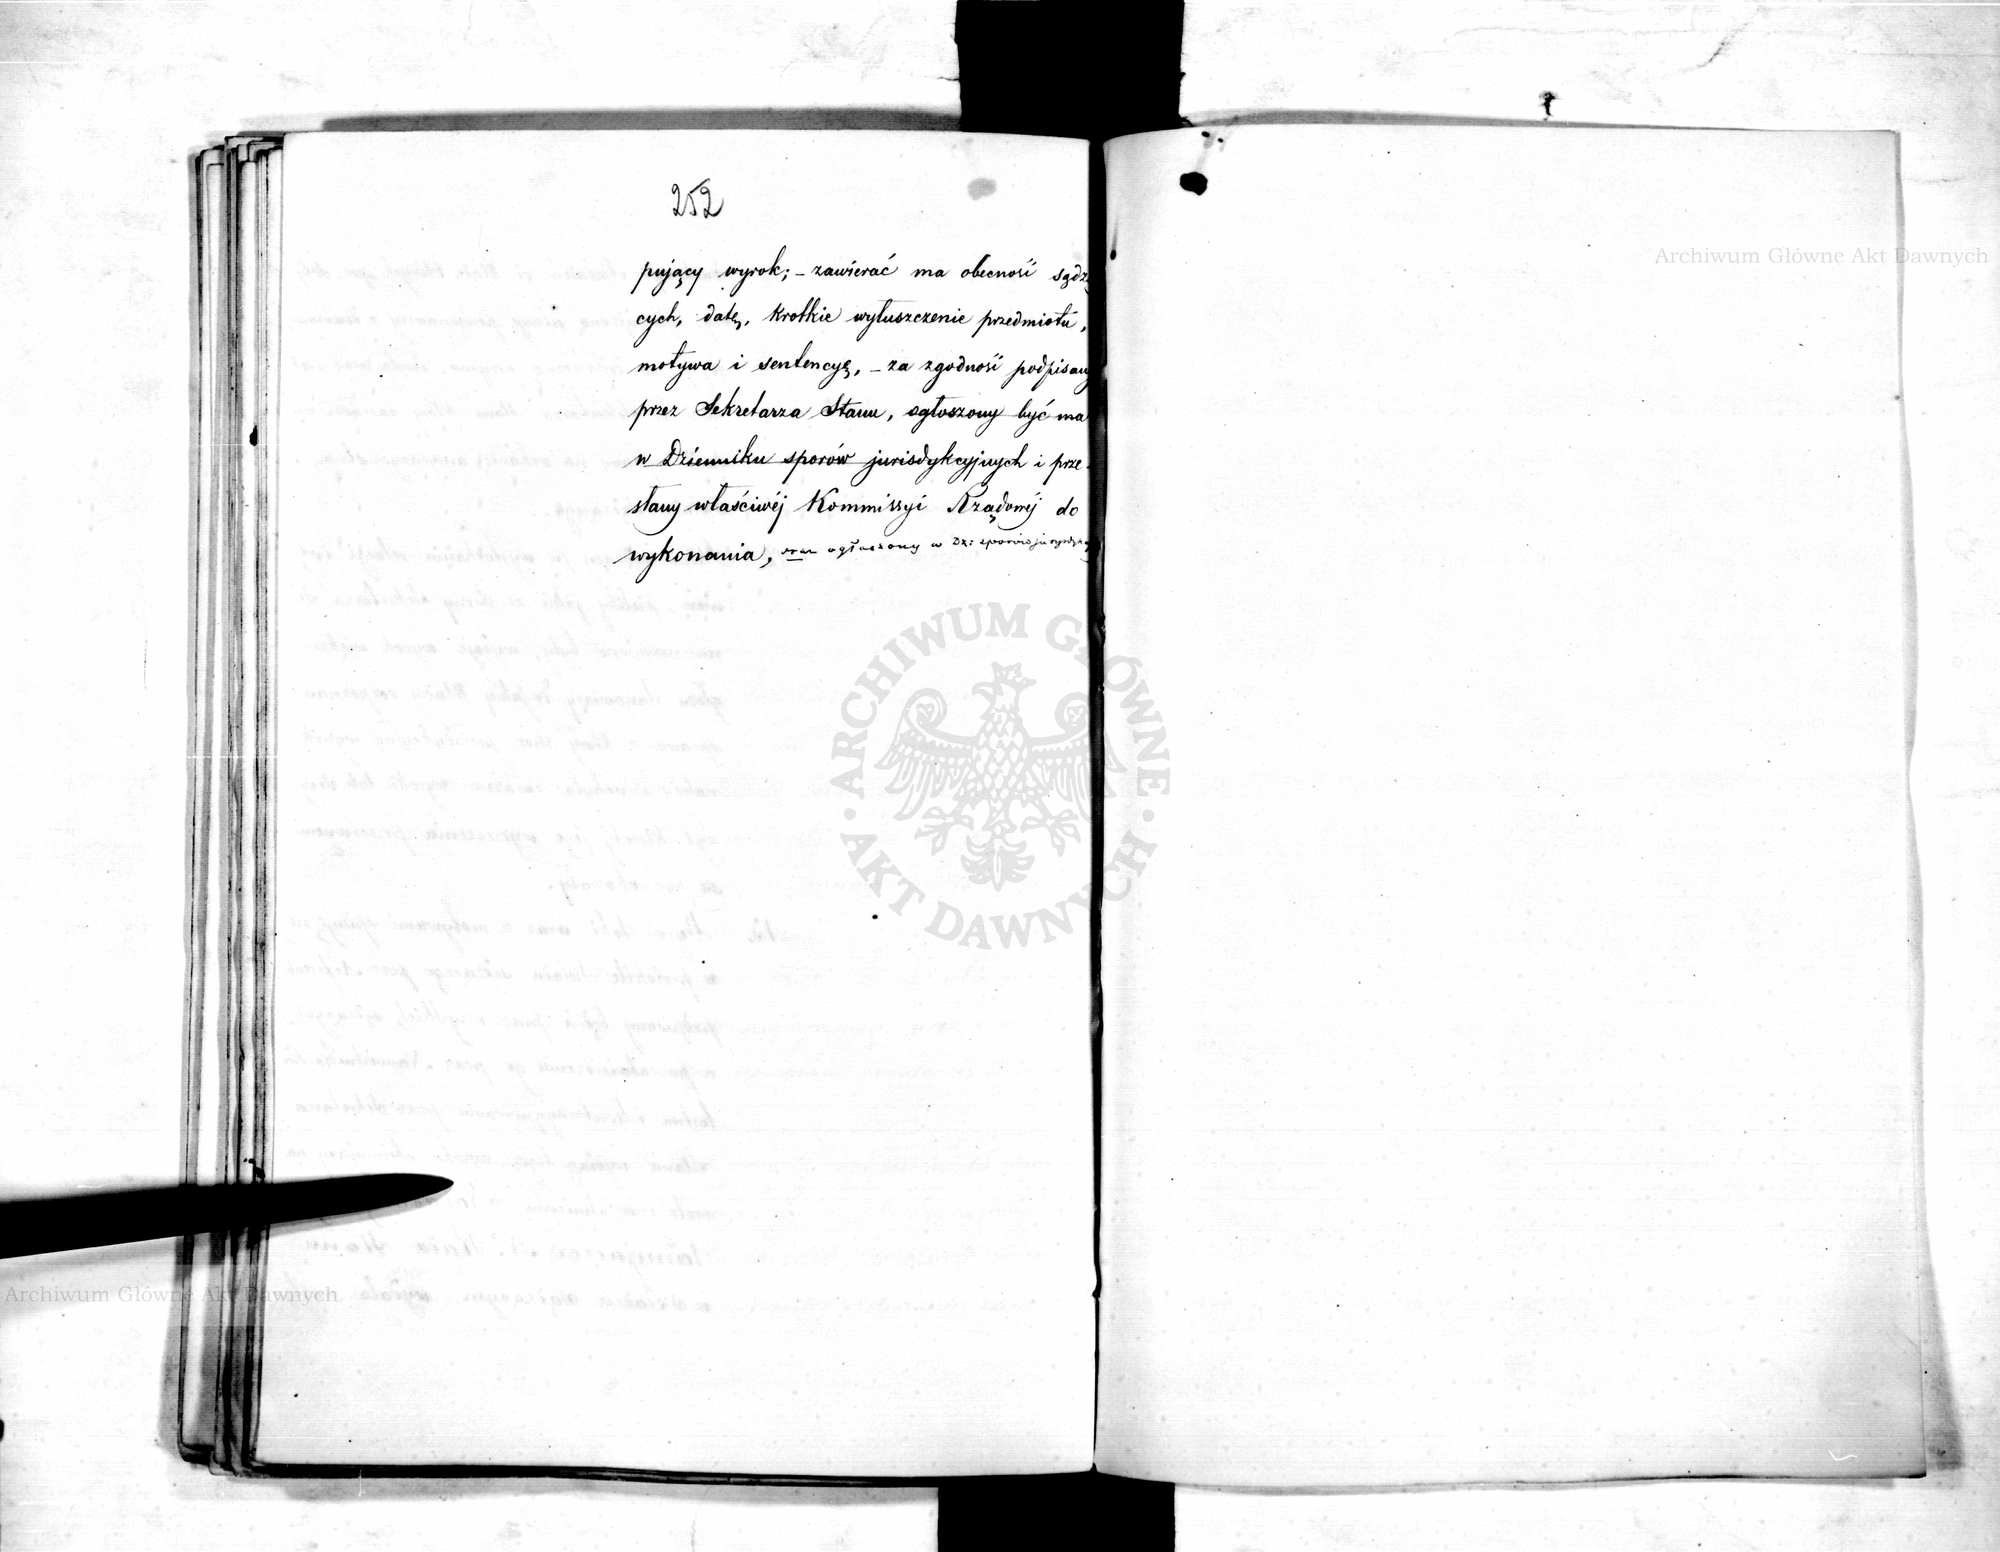 252
pujący wyrok; – zawierać ma obecność sądzą
cych, datę, krótkie wyłuszczenie przedmiotu,
motywa i sentencyę, – za zgodność podpisany
przez Sekretarza Stanu, ogłoszony być ma
w Dzienniku sporów jurisdykcyjnych i prze-
słany właściwéj Kommissyi Rządowéj do
wykonania, oraz ogłoszony w Dz: sporów
Archiwum Główne Akt Dawnych
ARCHIWUM GŁÓWNE · AKT DAWNYCH ·
Archiwum Główne Akt Dawnych